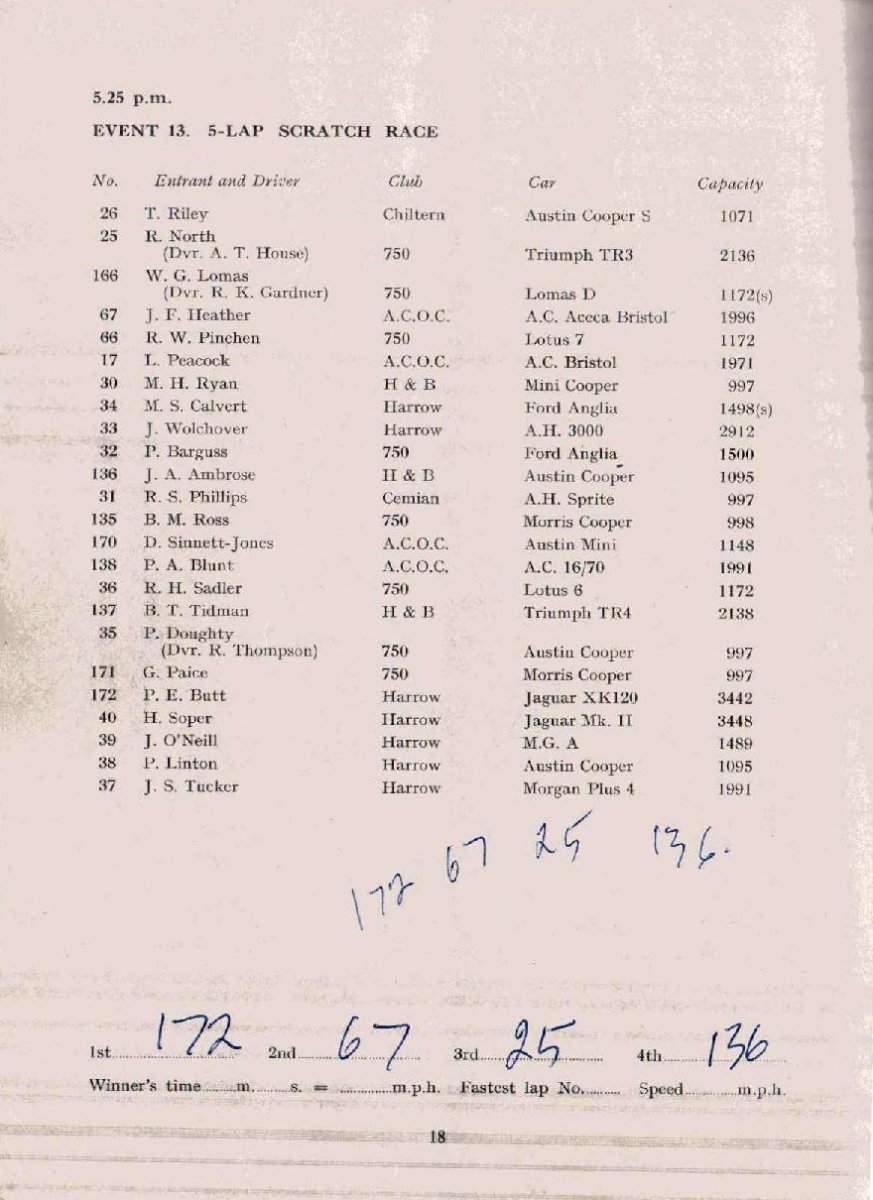 5.25 p.m.
EVENT 13. 5-LAP SCRATCH RACE
No. Entrant and Driver Club Car Capacity
26 T. Riley Chiltern Austin Cooper S 1071
25 R. North
(Dvr. A. T. House) 750 Triumph TR3 2136
166 W. G. Lomas
(Dvr. R. K. Gardner) 750 Lomas D 1172(s)
67 J. F. Heather A.C.O.C. A.C. Aceca Bristol 1996
66 R. W. Pinchen 750 Lotus 7 1172
17 L. Peacock A.C.O.C. A.C. Bristol 1971
30 M. H. Ryan H & B Mini Cooper 997
34 M. S. Calvert Harrow Ford Anglia 1498(s)
33 J. Wolchover Harrow A.H. 3000 2912
32 P. Barguss 750 Ford Anglia 1500
136 J. A. Ambrose H & B Austin Cooper 1095
31 R. S. Phillips Cemian A.H. Sprite 997
135 B. M. Ross 750 Morris Cooper 998
170 D. Sinnett-Jones A.C.O.C. Austin Mini 1148
138 P. A. Blunt A.C.O.C. A.C. 16/70 1991
36 R. H. Sadler 750 Lotus 6 1172
137 B. T. Tidman H & B Triumph TR4 2138
35 P. Doughty
(Dvr. R. Thompson) 750 Austin Cooper 997
171 G. Paice 750 Morris Cooper 997
172 P. E. Butt Harrow Jaguar XK120 3442
40 H. Soper Harrow Jaguar Mk. II 3448
39 J. O'Neill Harrow M.G. A 1489
38 P. Linton Harrow Austin Cooper 1095
37 J. S. Tucker Harrow Morgan Plus 4 1991
172 67 25 136.
1st 172 2nd 67 3rd 25 4th 136
Winner's time ......m. ......s. = ............m.p.h. Fastest lap No. ........ Speed ............m.p.h.
18